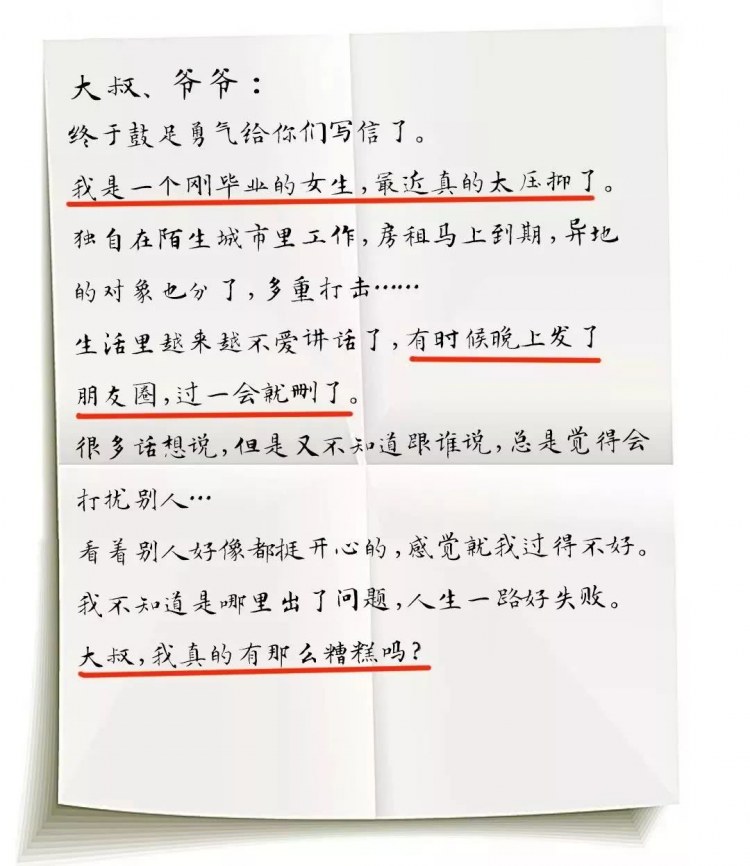 大叔、爷爷：
终于鼓足勇气给你们写信了。
我是一个刚毕业的女生，最近真的太压抑了。
独自在陌生城市里工作，房租马上到期，异地
的对象也分了，多重打击……
生活里越来越不爱讲话了，有时候晚上发了
朋友圈，过一会就删了。
很多话想说，但是又不知道跟谁说，总是觉得会
打扰别人…
看着别人好像都挺开心的，感觉就我过得不好。
我不知道是哪里出了问题，人生一路好失败。
大叔，我真的有那么糟糕吗？